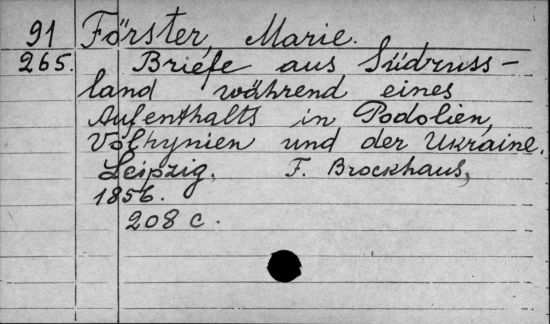 91 Förster, Marie.
265. Briefe aus Südruss-
land während eines
Aufenthalts in Podolien,
Volhynien und der Ukraine.
Leipzig, F. Brockhaus,
1856.
208 c.